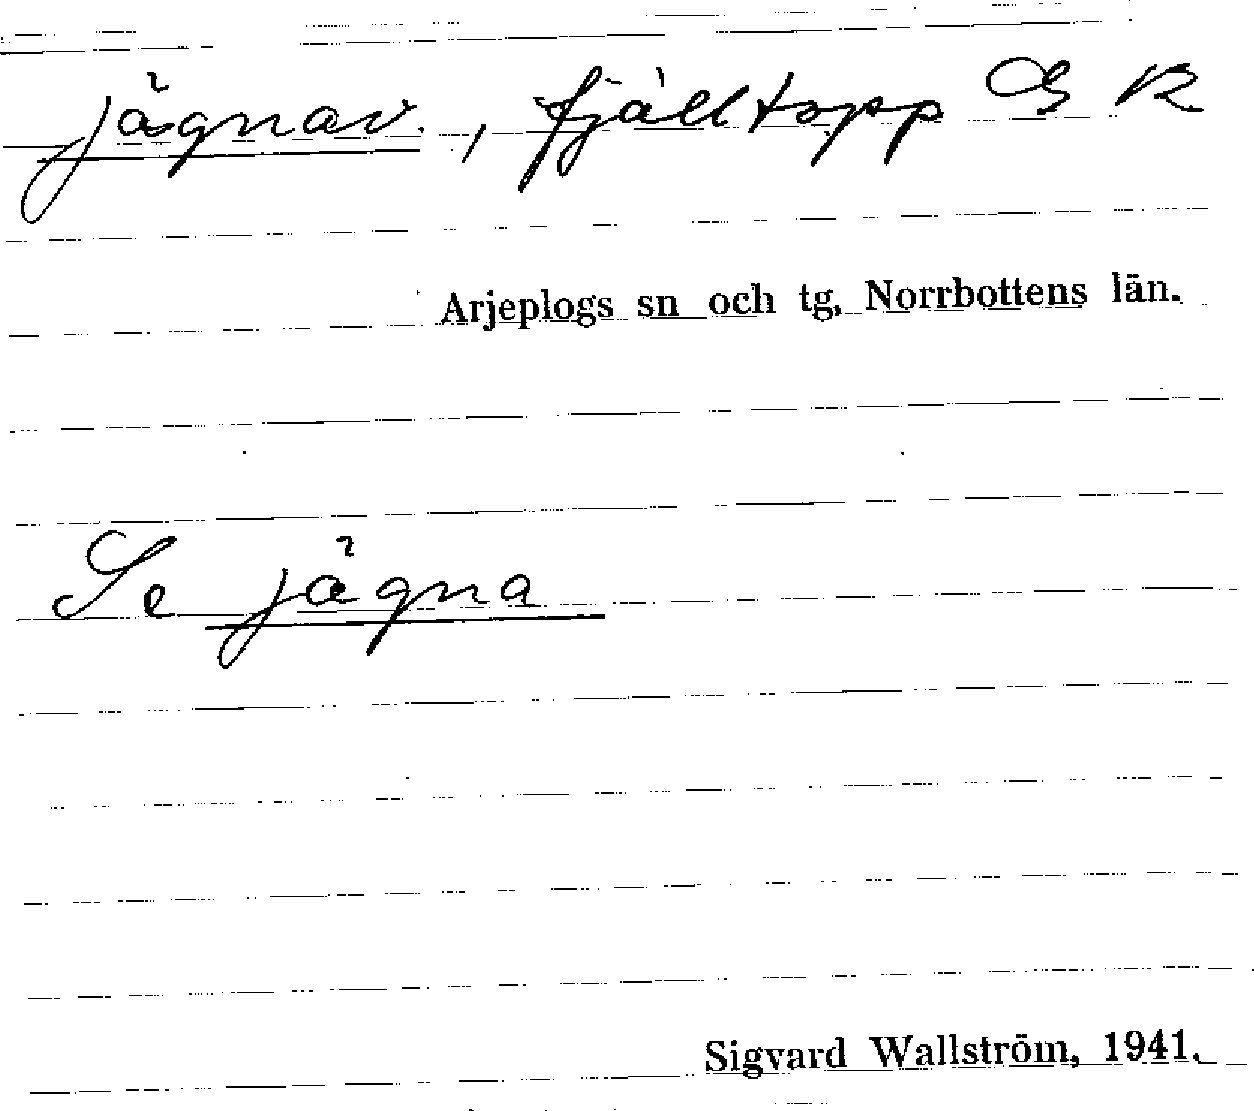 jågnav., fjälltopp G K
Arjeplogs sn och tg, Norrbottens län.
Se jågna
Sigvard Wallström, 1941.